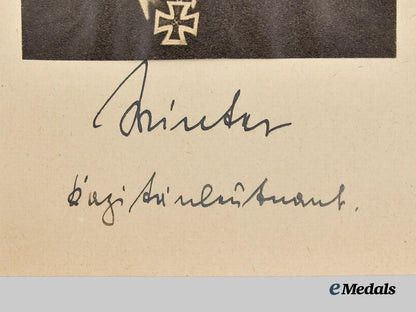 Winter
Kapitänleutnant.
eMedals